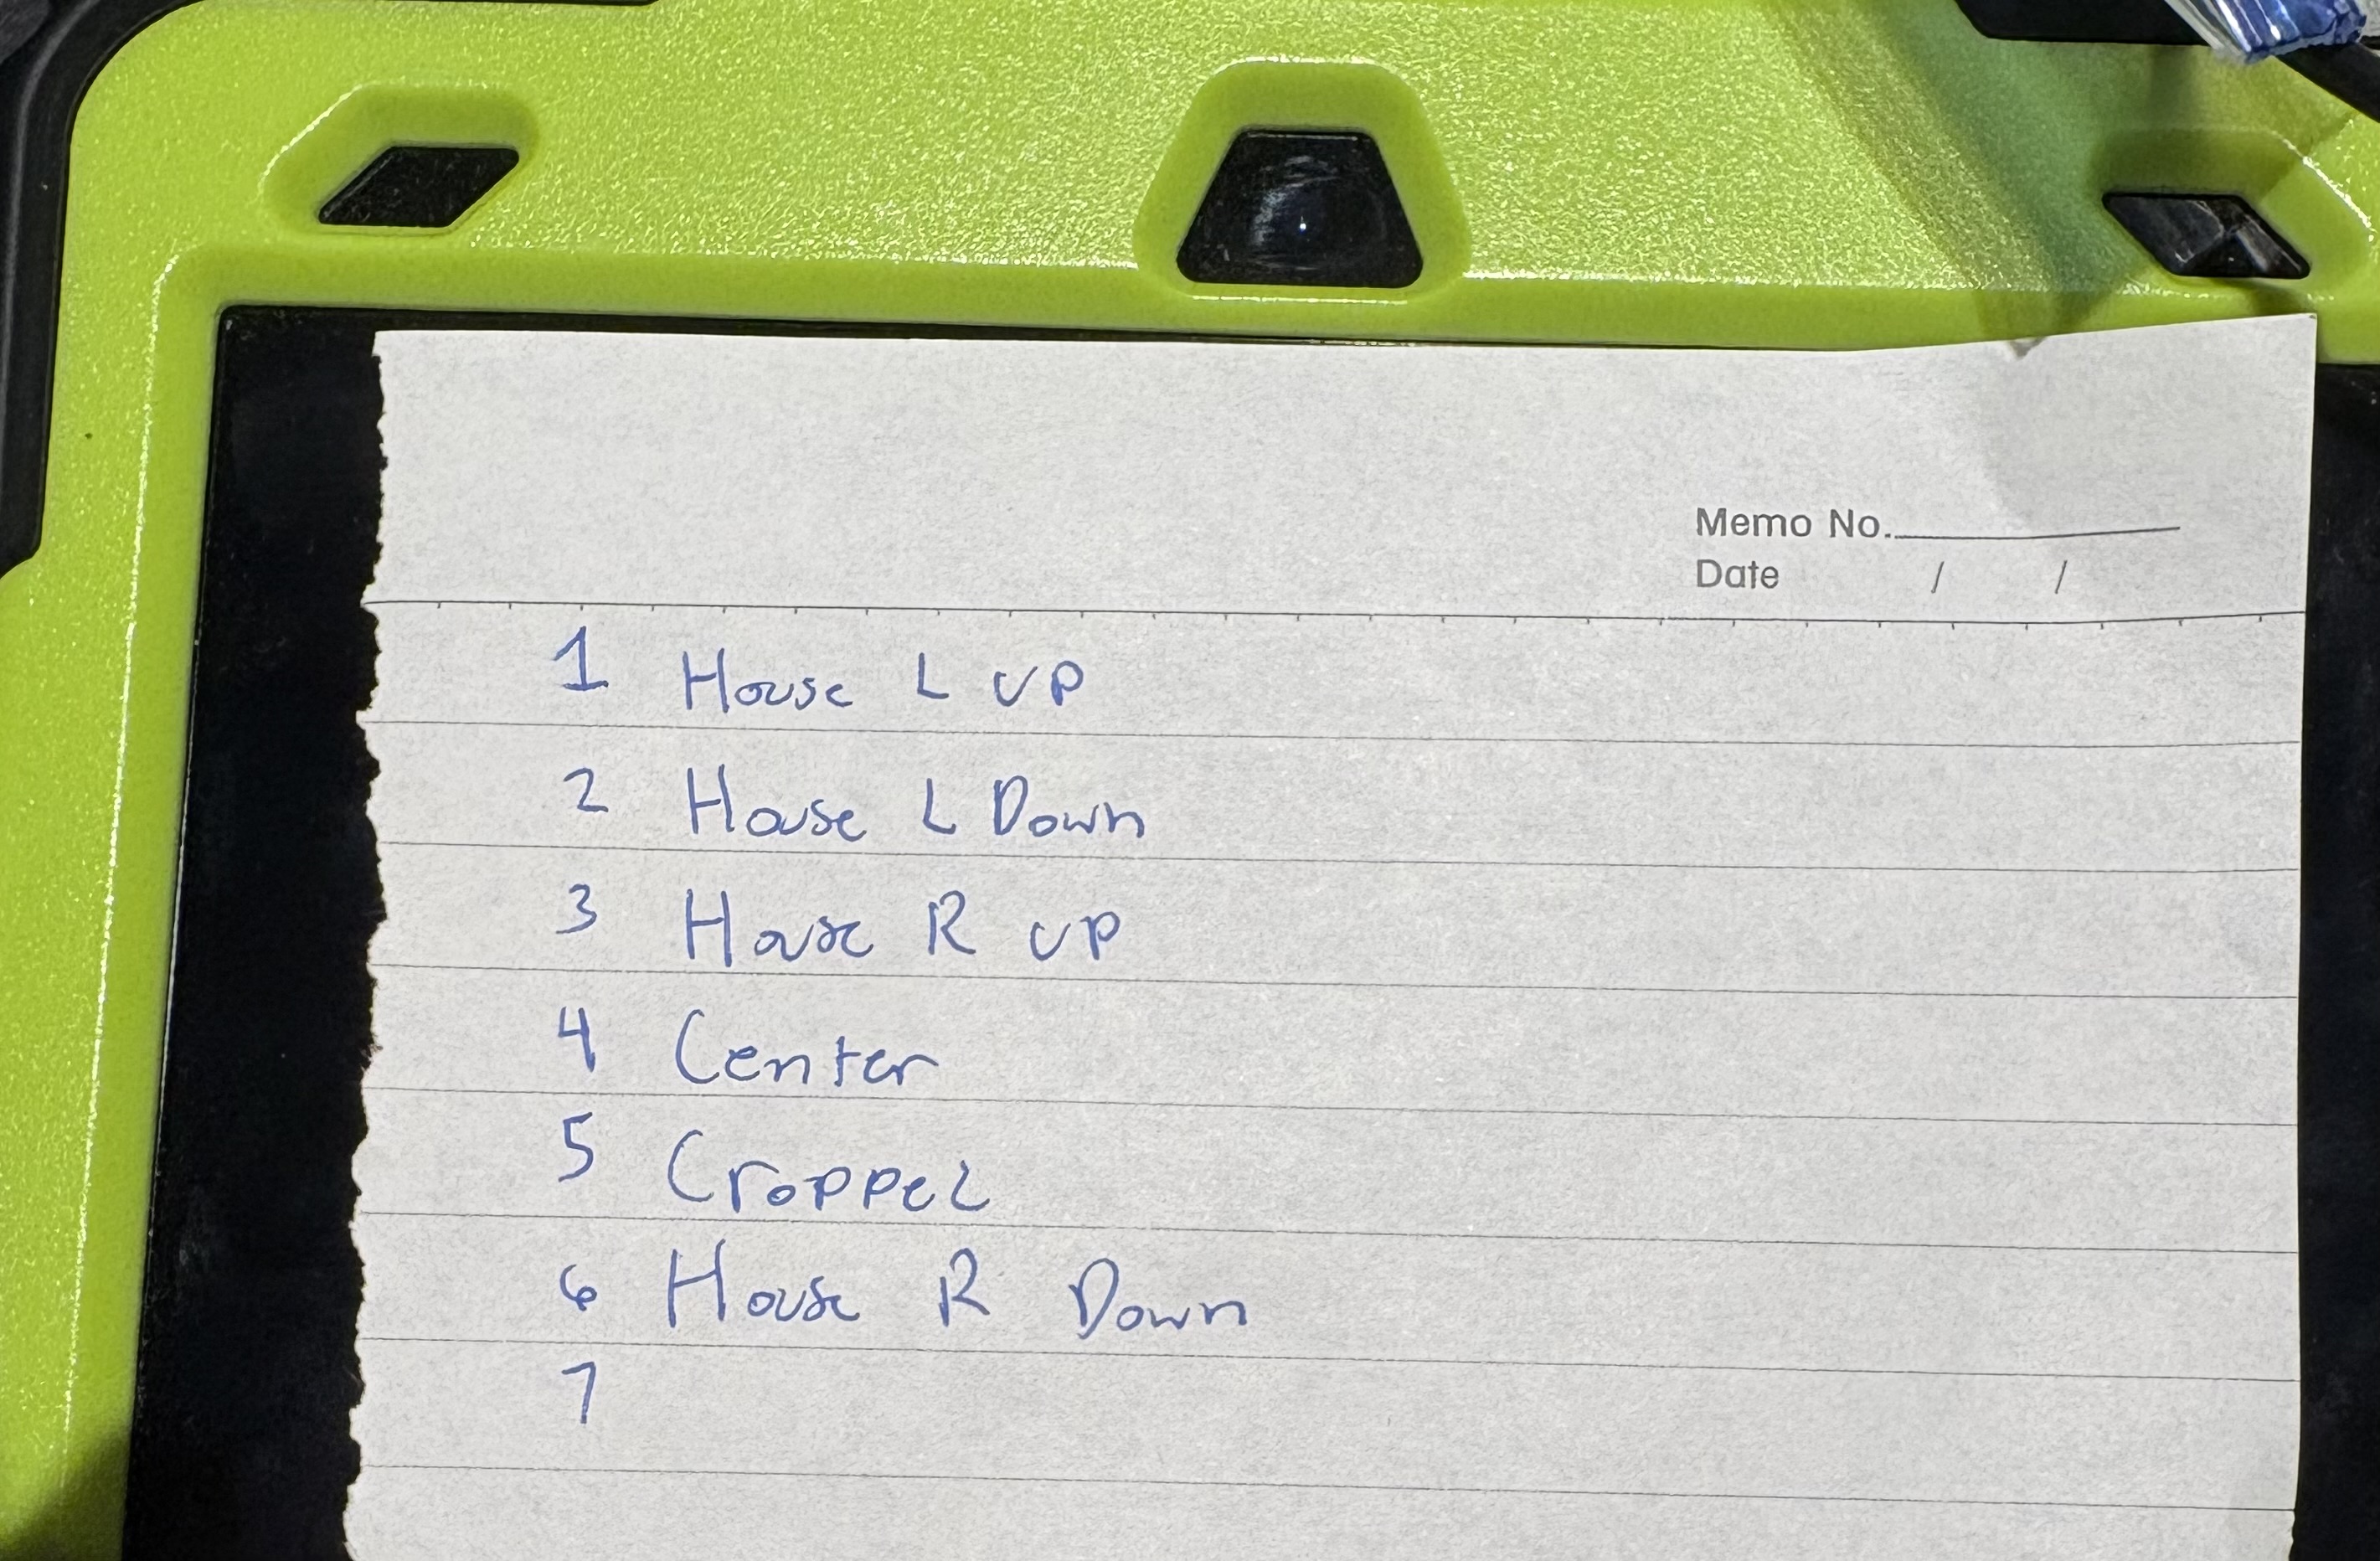 Memo No.
Date / /
1 House L UP
2 House L Down
3 House R UP
4 Center
5 Croppel
6 House R Down
7